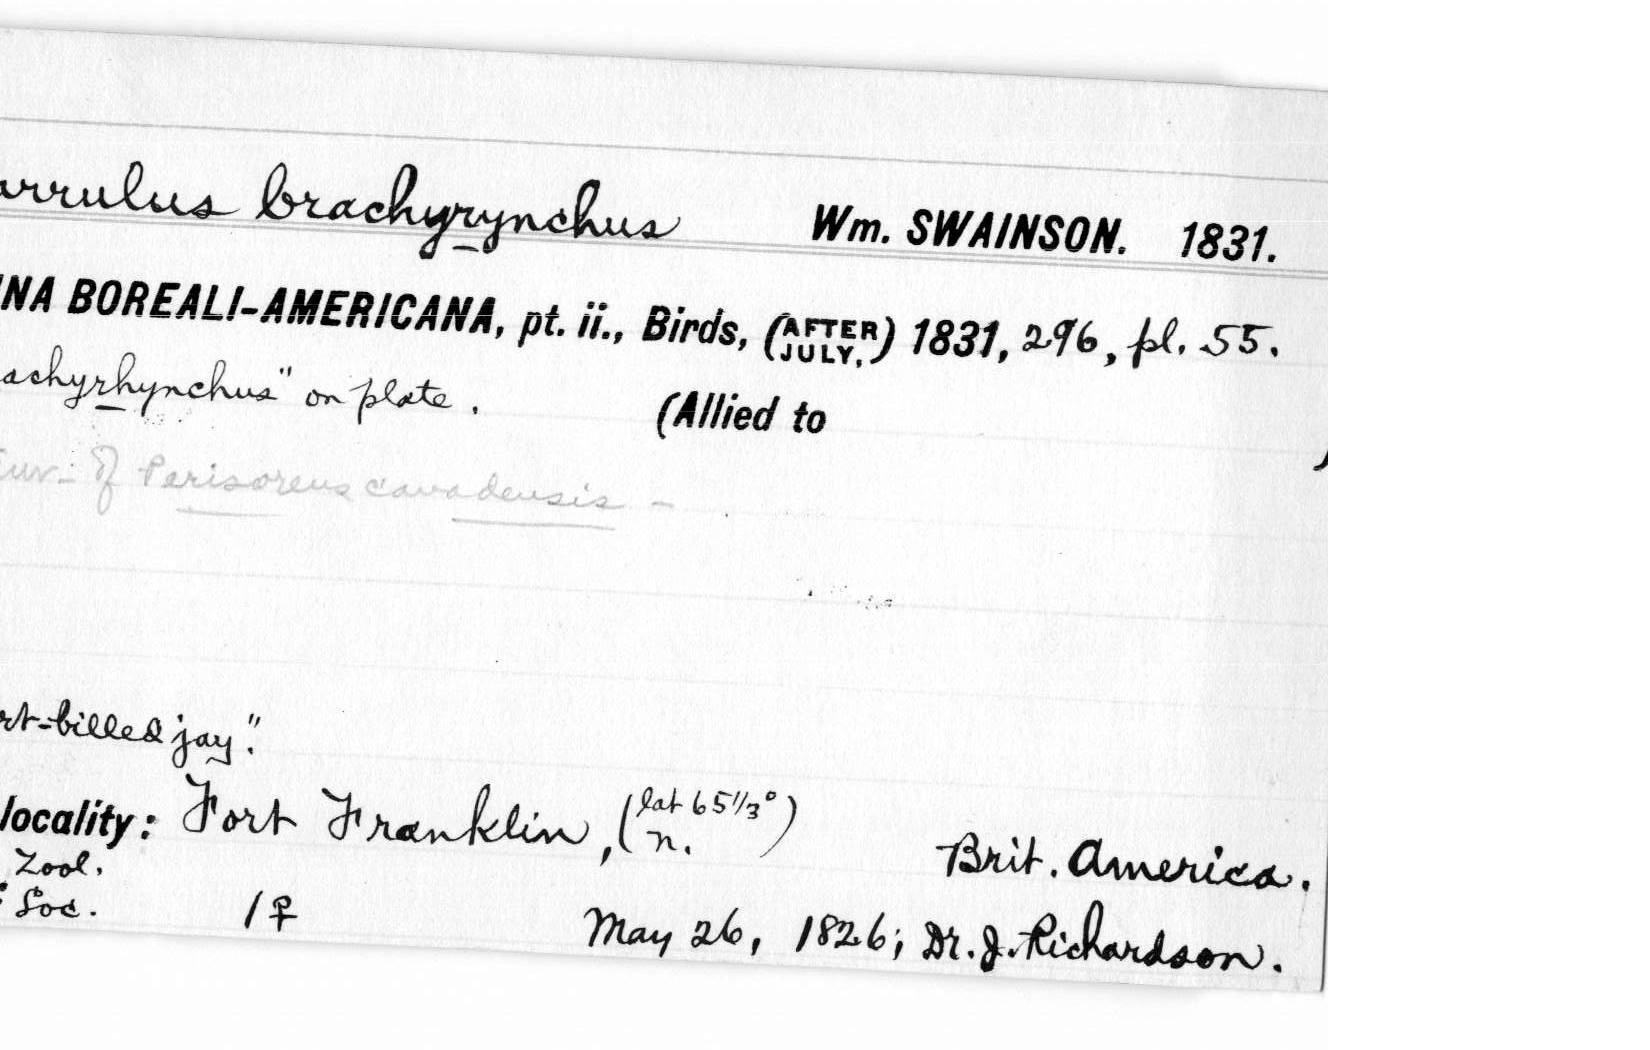 arrulus brachyrynchus Wm. SWAINSON. 1831.
NA BOREALI-AMERICANA, pt. ii., Birds, (AFTER JULY,) 1831, 296, pl. 55.
achyrhynchus" on plate. (Allied to )
Juv. of Perisoreus canadensis -
rt-billed jay."
locality: Fort Franklin, (lat 65 1/3° n.) Brit. America.
Zool.
Soc. 1♀ May 26, 1826; Dr. J. Richardson.